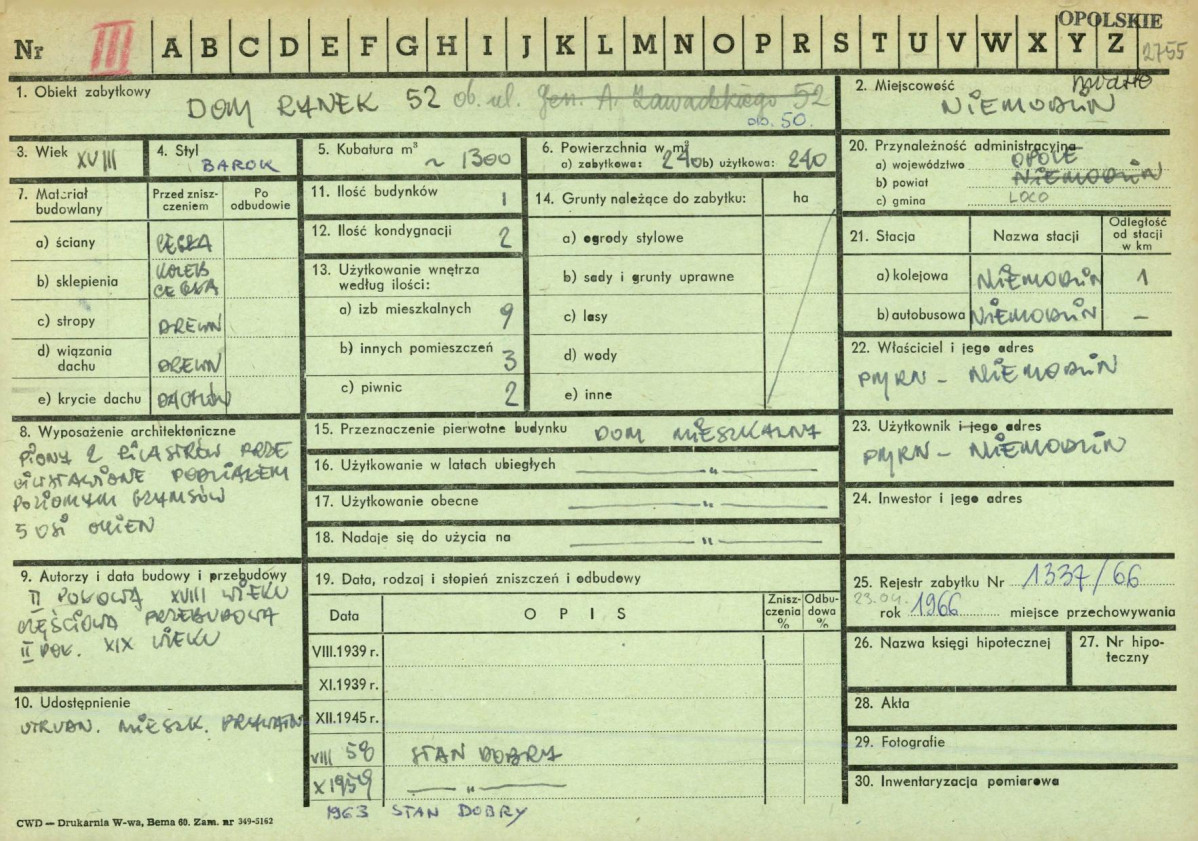 OPOLSKIE
Nr III A B C D E F G H I J K L M N O P R S T U V W X Y Z 2755
1. Obiekt zabytkowy
DOM RYNEK 52 ob. ul. Gen. A. Zawadzkiego 52
ob. 50.
2. Miejscowość
NIEMODLIN
3. Wiek XVIII
4. Styl
BAROK
5. Kubatura m³
~ 1300
6. Powierzchnia w m²
a) zabytkowa: 240 b) użytkowa: 240
20. Przynależność administracyjna
a) województwo OPOLE
b) powiat NIEMODLIN
c) gmina LOCO
7. Materiał budowlany
Przed znisz-
czeniem
Po
odbudowie
a) ściany CEGŁA
b) sklepienia KOLEB
CEGŁA
c) stropy DREWN
d) wiązania
dachu DREWN
e) krycie dachu DACHÓW
11. Ilość budynków 1
12. Ilość kondygnacji 2
13. Użytkowanie wnętrza
według ilości:
a) izb mieszkalnych 9
b) innych pomieszczeń 3
c) piwnic 2
14. Grunty należące do zabytku: ha
a) ogrody stylowe
b) sady i grunty uprawne
c) lasy
d) wody
e) inne
21. Stacja
Nazwa stacji
Odległość
od stacji
w km
a) kolejowa NIEMODLIN 1
b) autobusowa NIEMODLIN –
22. Właściciel i jego adres
PMRN – NIEMODLIN
23. Użytkownik i jego adres
PMRN – NIEMODLIN
24. Inwestor i jego adres
8. Wyposażenie architektoniczne
PIONY 2 PILASTRÓW PRZE
CIWSTAWIONE PODZIAŁEM
POZIOMYM GZYMSÓW
5 OSI OKIEN
15. Przeznaczenie pierwotne budynku DOM MIESZKALNY
16. Użytkowanie w latach ubiegłych — „ —
17. Użytkowanie obecne — „ —
18. Nadaje się do użycia na — „ —
9. Autorzy i data budowy i przebudowy
II POŁOWA XVIII WIEKU
CZĘŚCIOWA PRZEBUDOWA
II POŁ. XIX WIEKU
10. Udostępnienie
UTRUDN. MIESZK. PRYWATN
19. Data, rodzaj i stopień zniszczeń i odbudowy
Data
O P I S
Znisz-
czenia
%
Odbu-
dowa
%
VIII.1939 r.
XI.1939 r.
XII.1945 r.
VIII 58 STAN DOBRY
X 1959 — „ —
1963 STAN DOBRY
25. Rejestr zabytku Nr 1337/66
23.04.
rok 1966 miejsce przechowywania
26. Nazwa księgi hipotecznej
27. Nr hipo-
teczny
28. Akta
29. Fotografie
30. Inwentaryzacja pomiarowa
CWD — Drukarnia W-wa, Bema 60. Zam. nr 349-5162